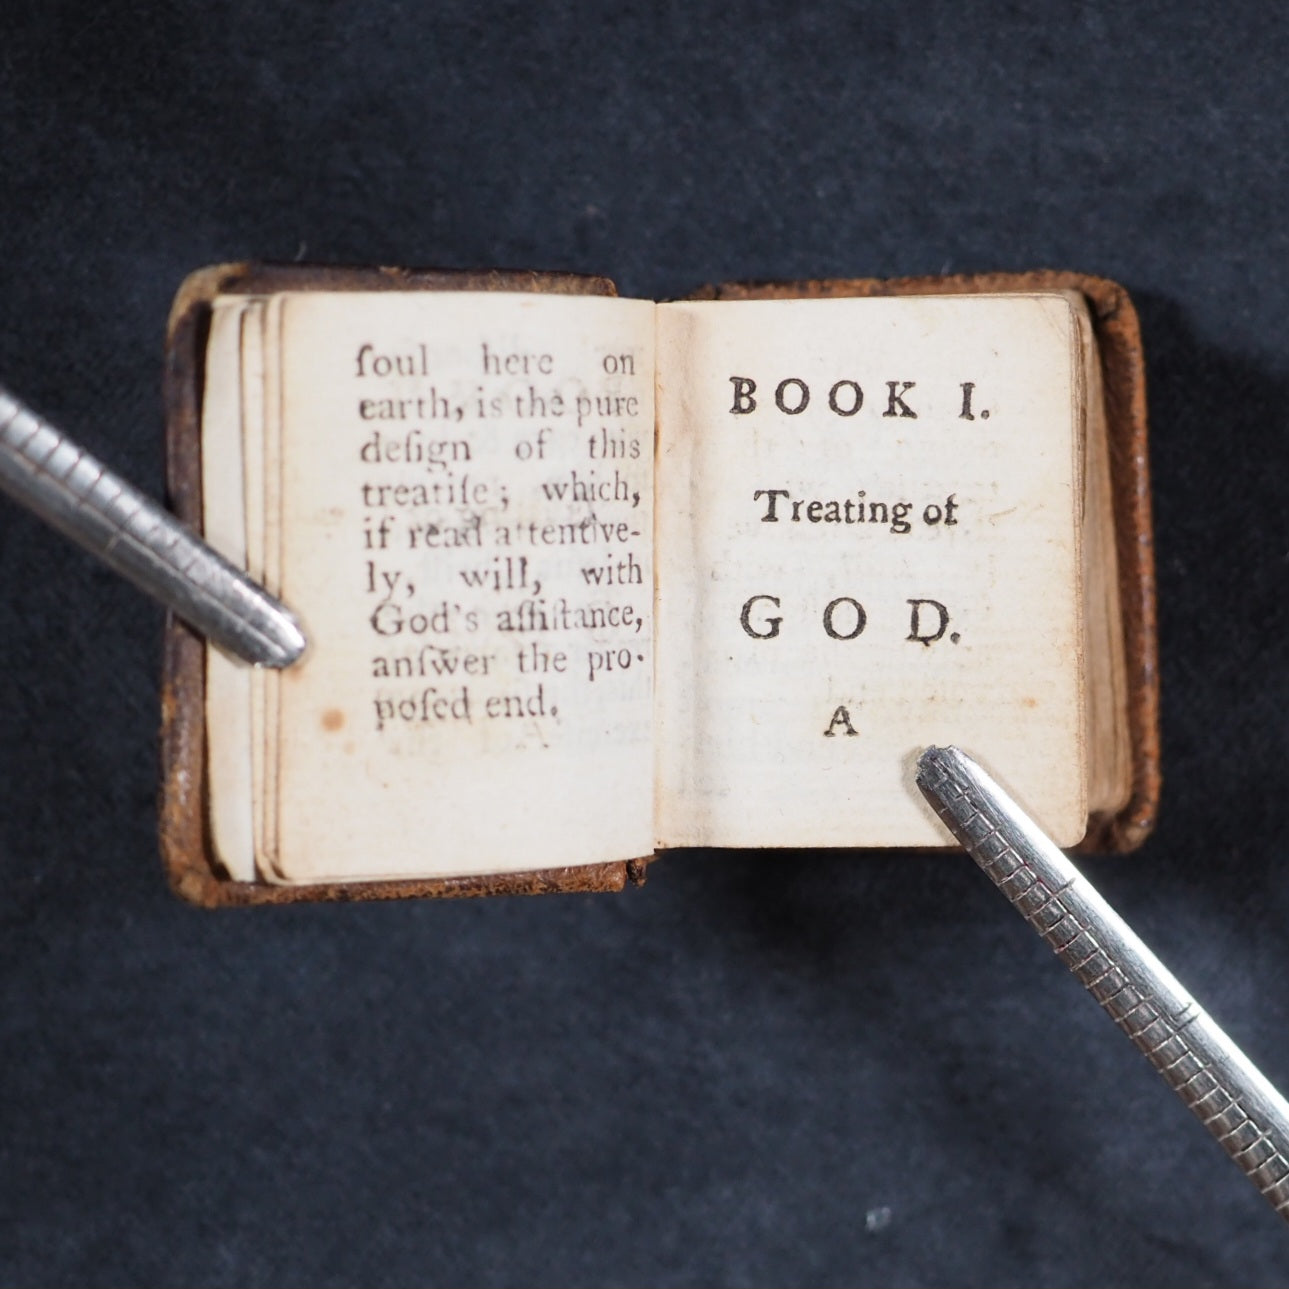 ſoul here on
earth, is the pure
deſign of this
treatiſe; which,
if read attentive-
ly, will, with
God's aſſiſtance,
anſwer the pro-
poſed end.
BOOK I.
Treating of
GOD.
A